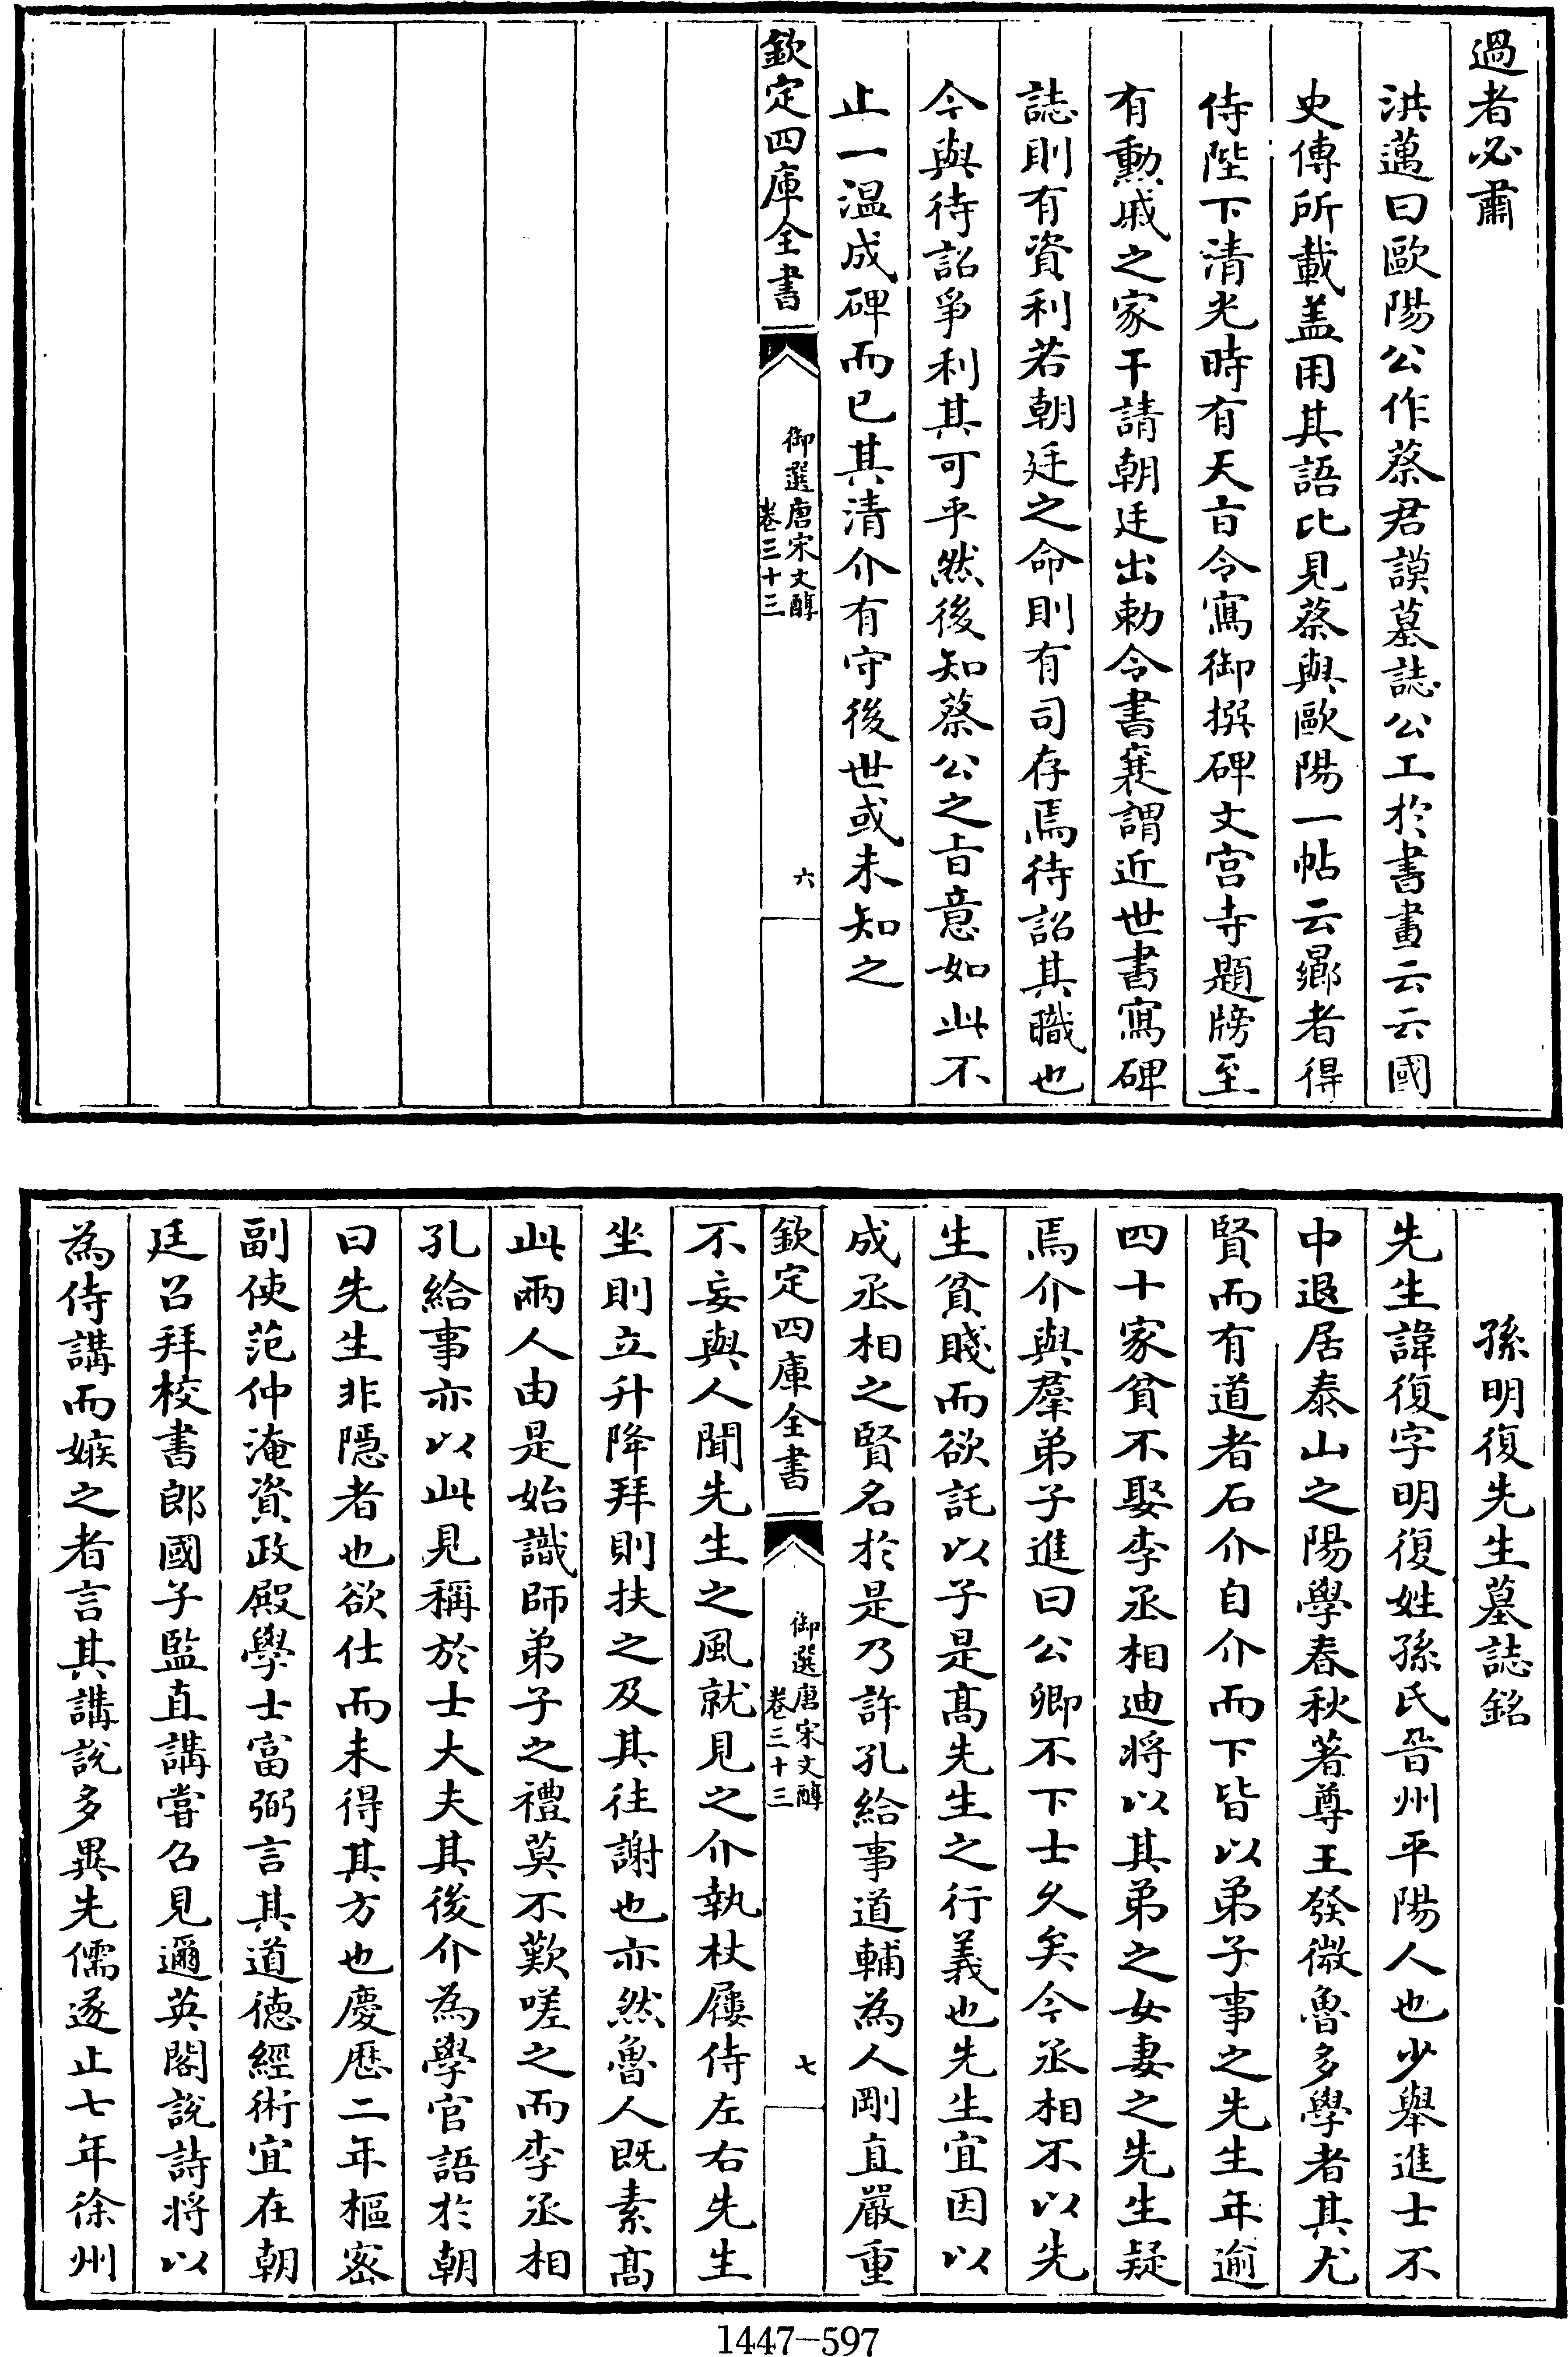 過者必肅
洪邁曰歐陽公作蔡君謨墓誌公工於書畫云云國
史傳所載盖用其語比見蔡與歐陽一帖云曏者得
侍陛下清光時有天㫖令寫御撰碑文宫寺題牓至
有勳戚之家干請朝廷出勅令書襄謂近世書寫碑
誌則有資利若朝廷之命則有司存焉待詔其職也
今與待詔爭利其可乎然後知蔡公之㫖意如此不
止一温成碑而已其清介有守後世或未知之
欽定四庫全書
御選唐宋文醇
卷三十三
六
孫明復先生墓誌銘
先生諱復字明復姓孫氏晉州平陽人也少舉進士不
中退居泰山之陽學春秋著尊王發微魯多學者其尤
賢而有道者石介自介而下皆以弟子事之先生年逾
四十家貧不娶李丞相迪將以其弟之女妻之先生疑
焉介與羣弟子進曰公卿不下士久矣今丞相不以先
生貧賤而欲託以子是髙先生之行義也先生宜因以
成丞相之賢名於是乃許孔給事道輔為人剛直嚴重
欽定四庫全書
御選唐宋文醇
卷三十三
七
不妄與人聞先生之風就見之介執杖屨侍左右先生
坐則立升降拜則扶之及其往謝也亦然魯人既素髙
此兩人由是始識師弟子之禮莫不歎嗟之而李丞相
孔給事亦以此見稱於士大夫其後介為學官語於朝
曰先生非隠者也欲仕而未得其方也慶厯二年樞密
副使范仲淹資政殿學士富弼言其道徳經術宜在朝
廷召拜校書郎國子監直講嘗召見邇英閣說詩將以
為侍講而嫉之者言其講說多異先儒遂止七年徐州
1447-597